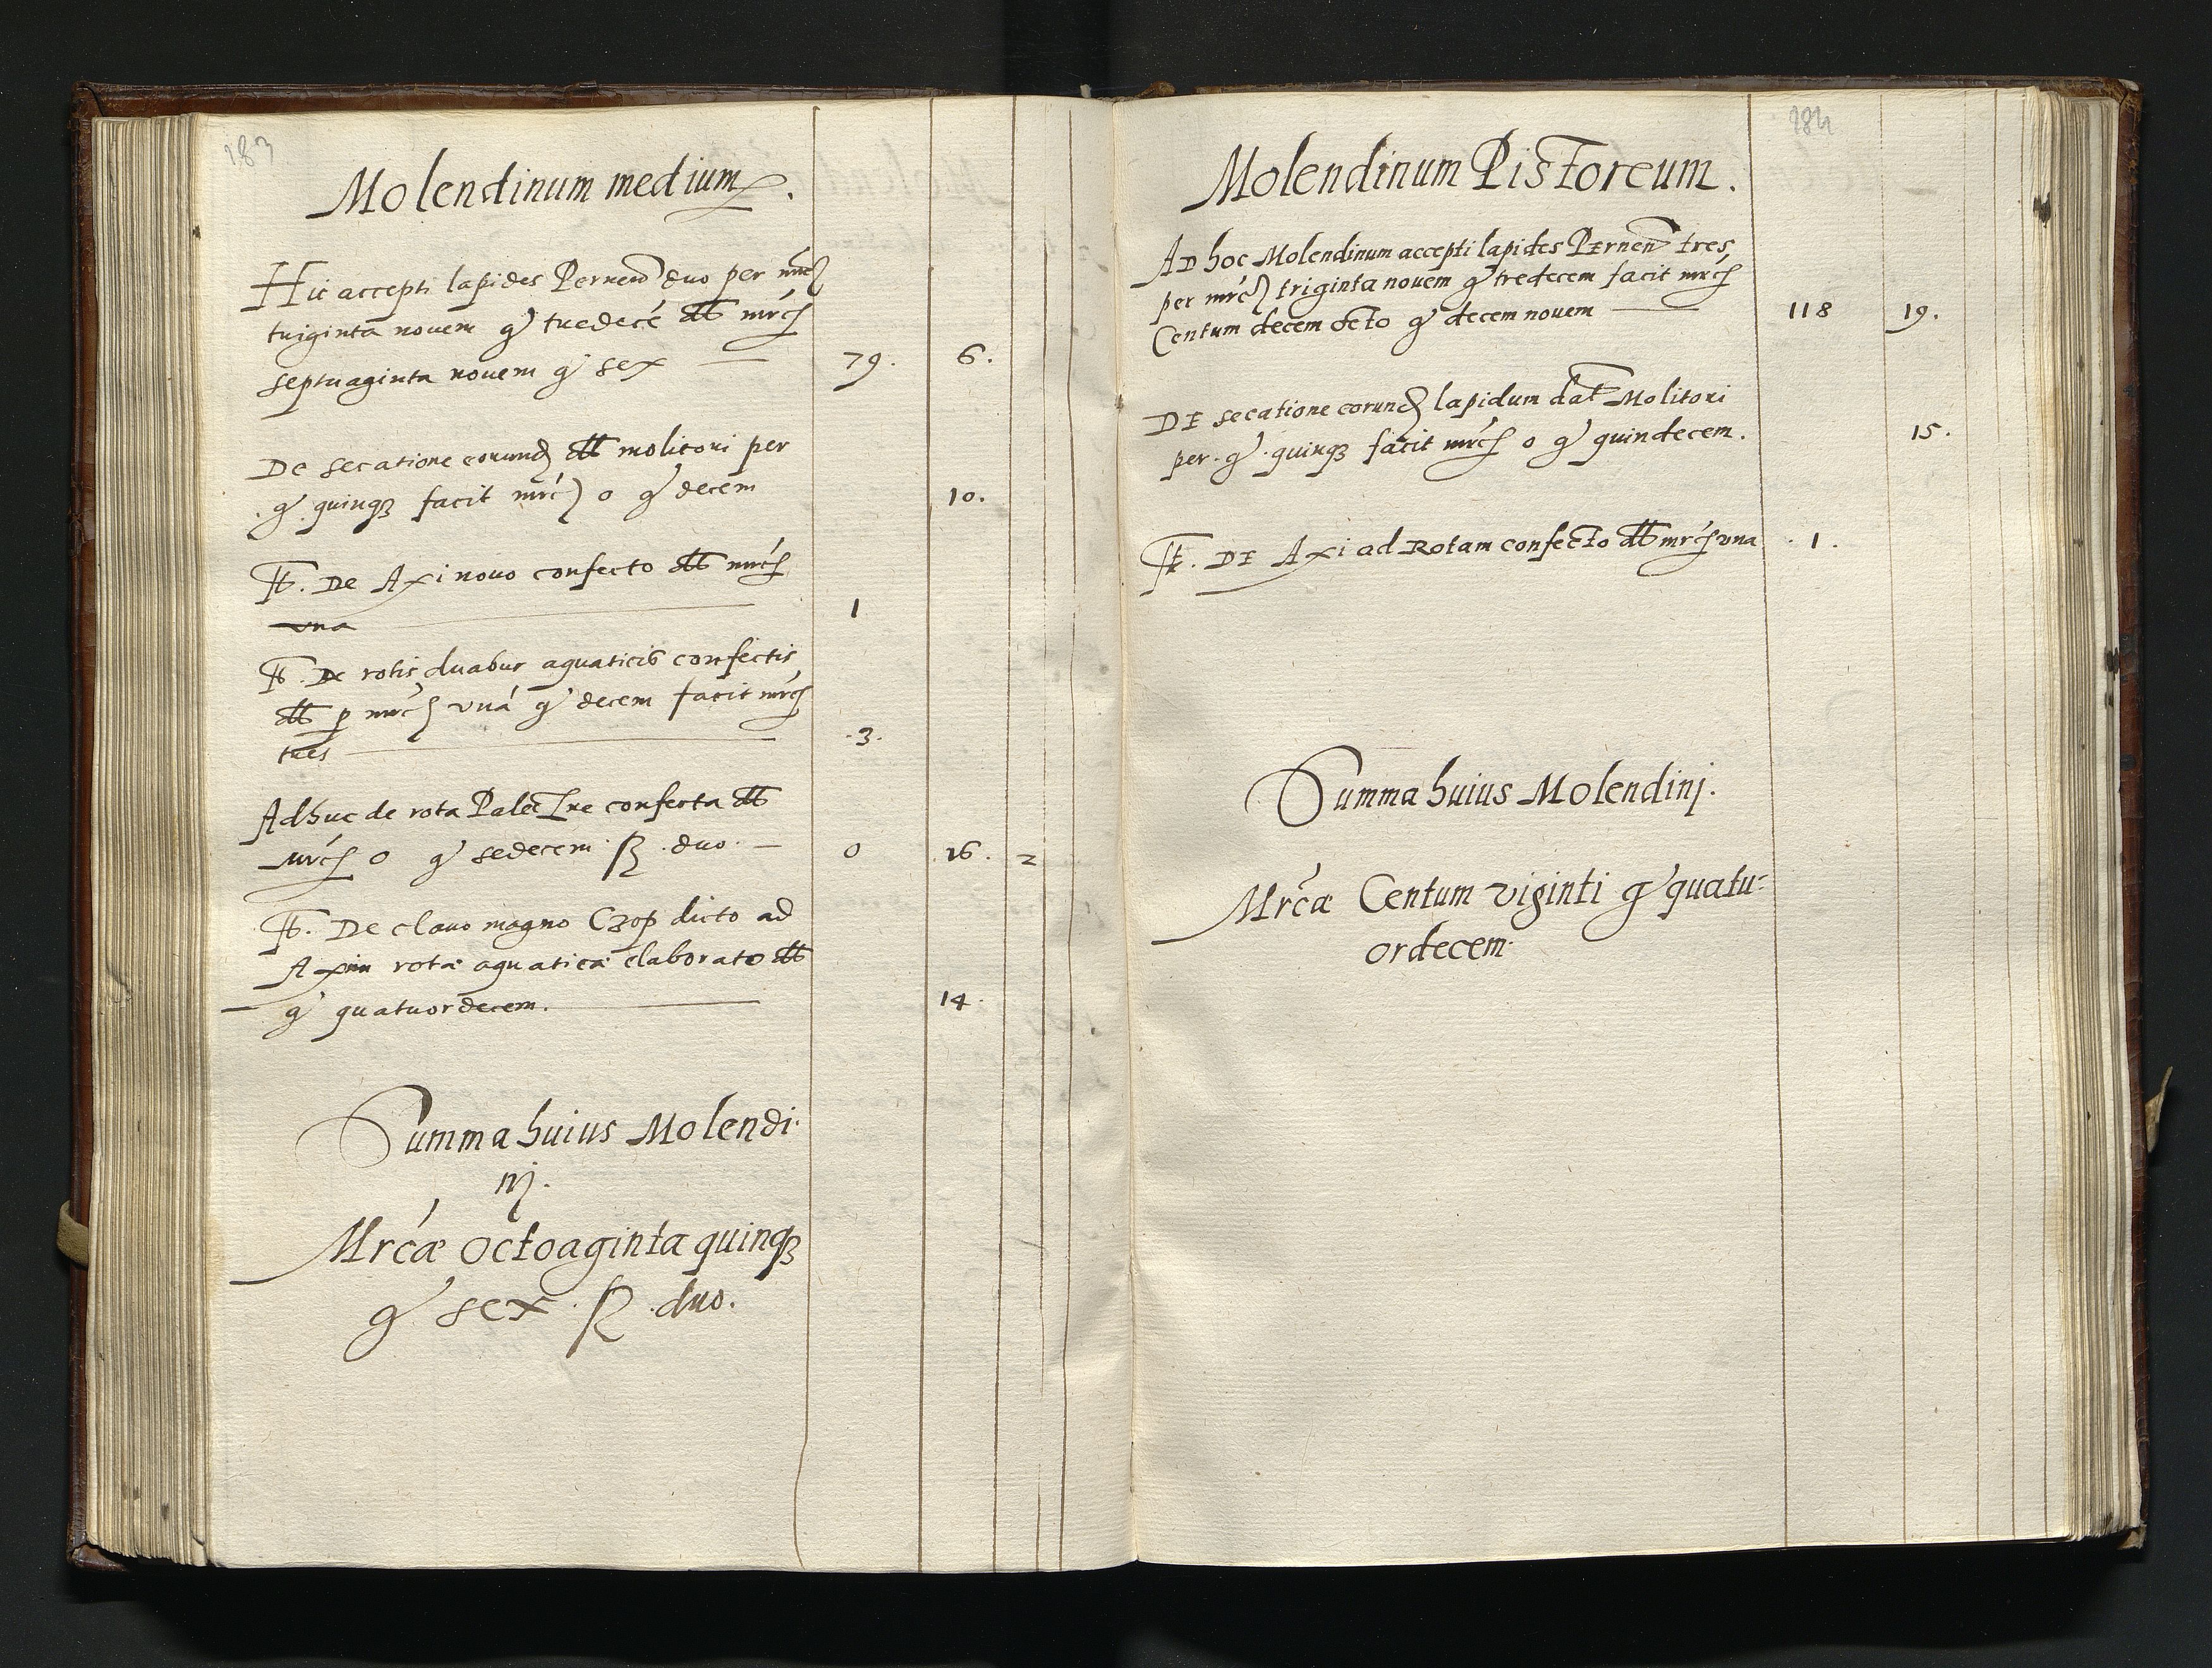 183
Molendinum medium.
Hic accepti lapides Pernen duo per mrc
triginta novem g tredecé dt mrc
septuaginta novem g sex 79. 6.
De secatione eorund dt molitori per
g quinq3 facit mrc o g decem 10.
It. De Axi novo confecto dt mrc
una 1
It. De rotis duabus aquaticis confectis
dt p mrc uná g decem facit mrc
tres .3.
Adhuc de rota Palectre confecta dt
mrc o g sedecem ß duo 0 16. 2
It. De clavo magno Czop dicto ad
Axim rotæ aquaticæ elaborato dt
g quatuordecem. 14.
Summa huius Molendi-
nj.
Mrcæ octoaginta quinq3
g sex ß duo.
184
Molendinum Pistoreum.
AD hoc Molendinum accepti lapides Pernen tres
per mrc triginta novem g tredecem facit mrc
Centum decem octo g decem novem 118 19.
DE secatione eorund lapidum dat Molitori
per g quinq3 facit mrc o g quindecem. 15.
It. DE Axi ad Rotam confecto dt mrc una .1.
Summa huius Molendinj.
Mrcæ Centum viginti g quatu-
ordecem.